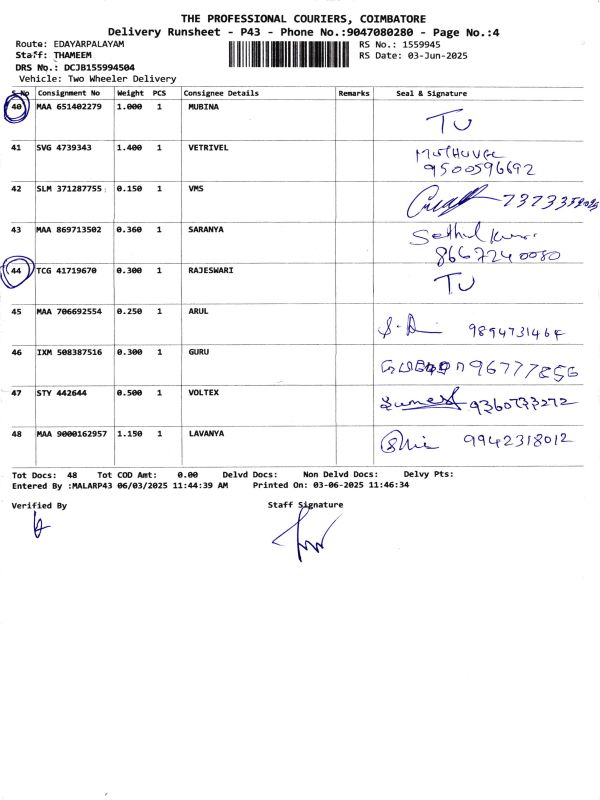 THE PROFESSIONAL COURIERS, COIMBATORE
Delivery Runsheet - P43 - Phone No.:9047080280 - Page No.:4
Route: EDAYARPALAYAM RS No.: 1559945
Staff: THAMEEM RS Date: 03-Jun-2025
DRS No.: DCJB155994504
Vehicle: Two Wheeler Delivery
S.No Consignment No Weight PCS Consignee Details Remarks Seal & Signature
40 MAA 651402279 1.000 1 MUBINA TU
41 SVG 4739343 1.400 1 VETRIVEL
9500596692
42 SLM 371287755 0.150 1 VMS
43 MAA 869713502 0.360 1 SARANYA Sethul Kumar
8667240080
44 TCG 41719670 0.300 1 RAJESWARI TU
45 MAA 706692554 0.250 1 ARUL 9894731464
46 IXM 508387516 0.300 1 GURU
47 STY 442644 0.500 1 VOLTEX 9360733272
48 MAA 9000162957 1.150 1 LAVANYA 9942318012
Tot Docs: 48 Tot COD Amt: 0.00 Delvd Docs: Non Delvd Docs: Delvy Pts:
Entered By :MALARP43 06/03/2025 11:44:39 AM Printed On: 03-06-2025 11:46:34
Verified By Staff Signature